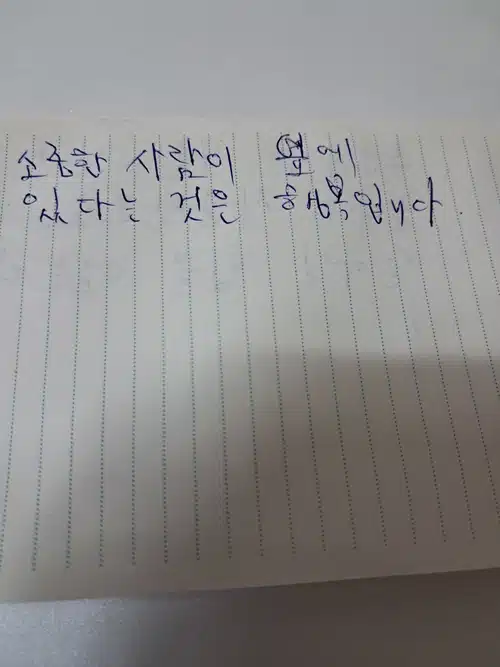 소중한 사람이 곁에
있다는 것은 행복입니다.